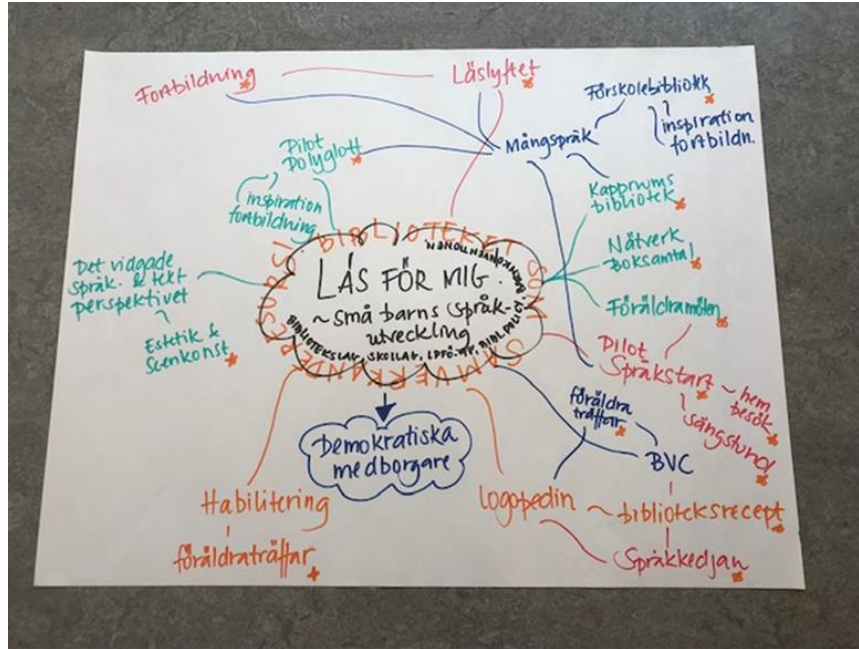 Fortbildning
Läslyftet
Förskolebibliotek
inspiration
fortbildn.
Mångspråk
Pilot
Polyglott
inspiration
fortbildning
Kapprums
bibliotek
Nätverk
Boksamtal
Föräldramöten
Det vidgade
språk- & text
perspektivet
Estetik &
Scenkonst
BIBLIOTEKET SOM SAMVERKANDE RESURS
LÄS FÖR MIG.
~ små barns språk-
utveckling
BARNKONVENTIONEN
BIBLIOTEKSLAG, SKOLLAG, LPFÖ
Pilot
Språkstart
~ hem
besök
sångstund
föräldra
träffar
BVC
Demokratiska
medborgare
Habilitering
föräldraträffar
Logopedin ~ biblioteksrecept
Språkkedjan